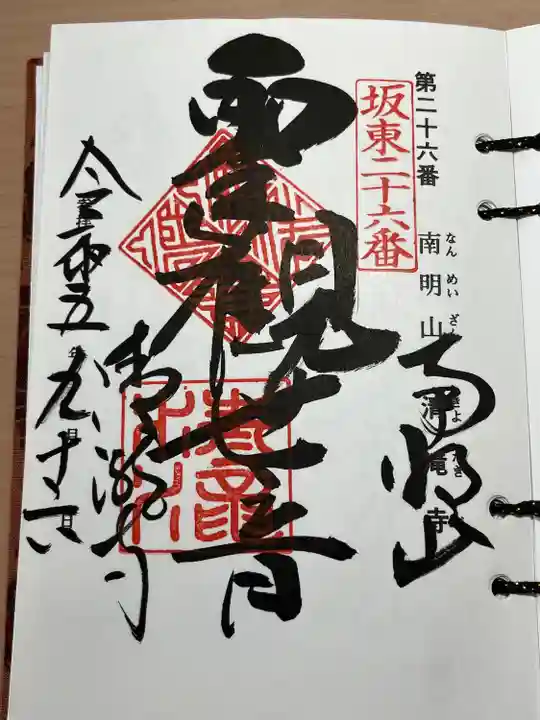 第二十六番 南明山 清滝寺
なんめいざん きよたき
坂東二十六番
南明山
聖観世音
清滝寺
令和五年九月十六日